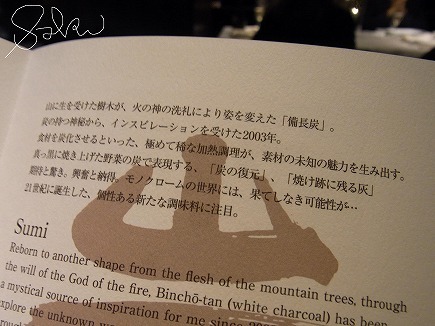 山に生を受けた樹木が、火の神の洗礼により姿を変えた「備長炭」。
炭の持つ神秘から、インスピレーションを受けた2003年。
食材を炭化させるといった、極めて稀な加熱調理が、素材の未知の魅力を生み出す。
真っ黒に焼き上げた野菜の炭で表現する、「炭の復元」、「焼け跡に残る灰」
期待と驚き。興奮と納得。モノクロームの世界には、果てしなき可能性が…
21世紀に誕生した、個性ある新たな調味料に注目。
Sumi
Reborn to another shape from the flesh of the mountain trees, through
the will of the God of the fire, Binchō-tan (white charcoal) has been
a mystical source of inspiration for me since
explore the unknown